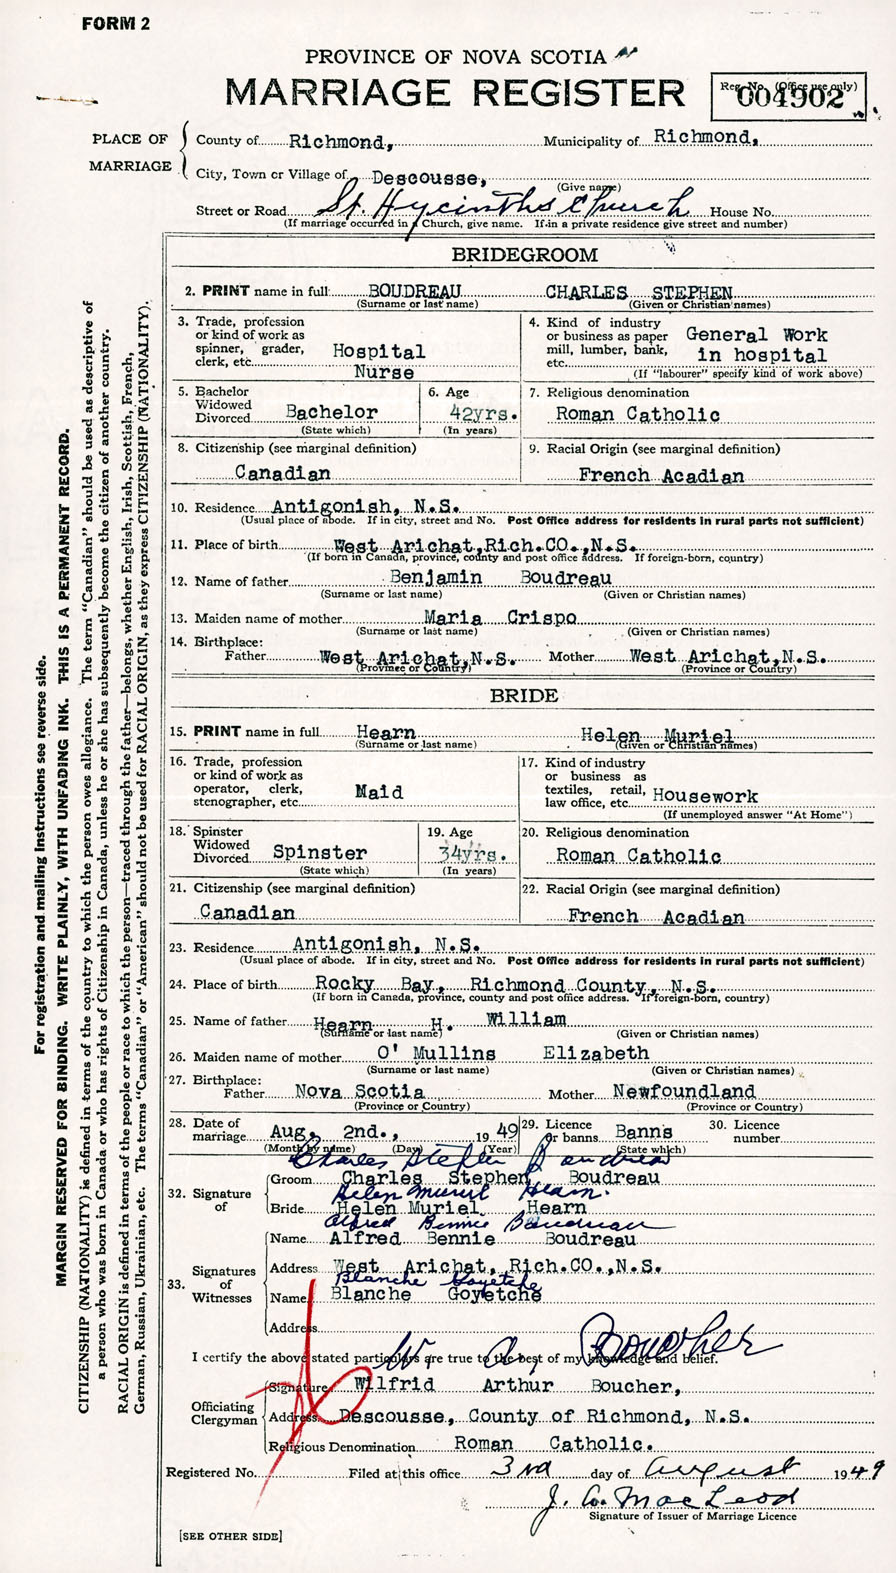 FORM 2
PROVINCE OF NOVA SCOTIA
MARRIAGE REGISTER
Reg. No. (Office use only)
004902
PLACE OF MARRIAGE
County of Richmond, Municipality of Richmond,
City, Town or Village of Descousse,
(Give name)
Street or Road St. Hycinths Church House No.
(If marriage occurred in a Church, give name. If in a private residence give street and number)
BRIDEGROOM
2. PRINT name in full BOUDREAU CHARLES STEPHEN
(Surname or last name) (Given or Christian names)
3. Trade, profession or kind of work as spinner, grader, clerk, etc. Hospital Nurse
4. Kind of industry or business as paper mill, lumber, bank, etc. General Work in hospital
(If "labourer" specify kind of work above)
5. Bachelor Widowed Divorced Bachelor
(State which)
6. Age 42yrs.
(In years)
7. Religious denomination
Roman Catholic
8. Citizenship (see marginal definition)
Canadian
9. Racial Origin (see marginal definition)
French Acadian
10. Residence Antigonish, N.S.
(Usual place of abode. If in city, street and No. Post Office address for residents in rural parts not sufficient)
11. Place of birth West Arichat,Rich.CO.,N.S.
(If born in Canada, province, county and post office address. If foreign-born, country)
12. Name of father Benjamin Boudreau
(Surname or last name) (Given or Christian names)
13. Maiden name of mother Maria Crispo
(Surname or last name) (Given or Christian names)
14. Birthplace:
Father West Arichat,N.S. Mother West Arichat,N.S.
(Province or Country) (Province or Country)
BRIDE
15. PRINT name in full Hearn Helen Muriel
(Surname or last name) (Given or Christian names)
16. Trade, profession or kind of work as operator, clerk, stenographer, etc. Maid
17. Kind of industry or business as textiles, retail, law office, etc. Housework
(If unemployed answer "At Home")
18. Spinster Widowed Divorced Spinster
(State which)
19. Age 34yrs.
(In years)
20. Religious denomination
Roman Catholic
21. Citizenship (see marginal definition)
Canadian
22. Racial Origin (see marginal definition)
French Acadian
23. Residence Antigonish, N.S.
(Usual place of abode. If in city, street and No. Post Office address for residents in rural parts not sufficient)
24. Place of birth Rocky Bay, Richmond County, N.S.
(If born in Canada, province, county and post office address. If foreign-born, country)
25. Name of father Hearn H. William
(Surname or last name) (Given or Christian names)
26. Maiden name of mother O' Mullins Elizabeth
(Surname or last name) (Given or Christian names)
27. Birthplace:
Father Nova Scotia Mother Newfoundland
(Province or Country) (Province or Country)
28. Date of marriage Aug. 2nd., 1949
(Month by name) (Day) (Year)
29. Licence or banns Banns
(State which)
30. Licence number
Charles Stephen Boudreau
32. Signature of
Groom Charles Stephen Boudreau
Helen Muriel Hearn.
Bride Helen Muriel Hearn
Alfred Bennie Boudreau
33. Signatures of Witnesses
Name Alfred Bennie Boudreau
Address West Arichat, Rich.CO.,N.S.
Blanche Goyetche
Name Blanche Goyetche
Address
W. A. Boucher
I certify the above stated particulars are true to the best of my knowledge and belief.
Officiating Clergyman
Signature Wilfrid Arthur Boucher,
Address Descousse, County of Richmond, N.S.
Religious Denomination Roman Catholic.
Registered No. Filed at this office 3rd day of August 1949
J. A. MacLeod
Signature of Issuer of Marriage Licence
[SEE OTHER SIDE]
For registration and mailing instructions see reverse side.
MARGIN RESERVED FOR BINDING. WRITE PLAINLY, WITH UNFADING INK. THIS IS A PERMANENT RECORD.
CITIZENSHIP (NATIONALITY) is defined in terms of the country to which the person owes allegiance. The term "Canadian" should be used as descriptive of
a person who was born in Canada or who has rights of Citizenship in Canada, unless he or she has subsequently become the citizen of another country.
RACIAL ORIGIN is defined in terms of the people or race to which the person—traced through the father—belongs, whether English, Irish, Scottish, French,
German, Russian, Ukrainian, etc. The terms "Canadian" or "American" should not be used for RACIAL ORIGIN, as they express CITIZENSHIP (NATIONALITY).